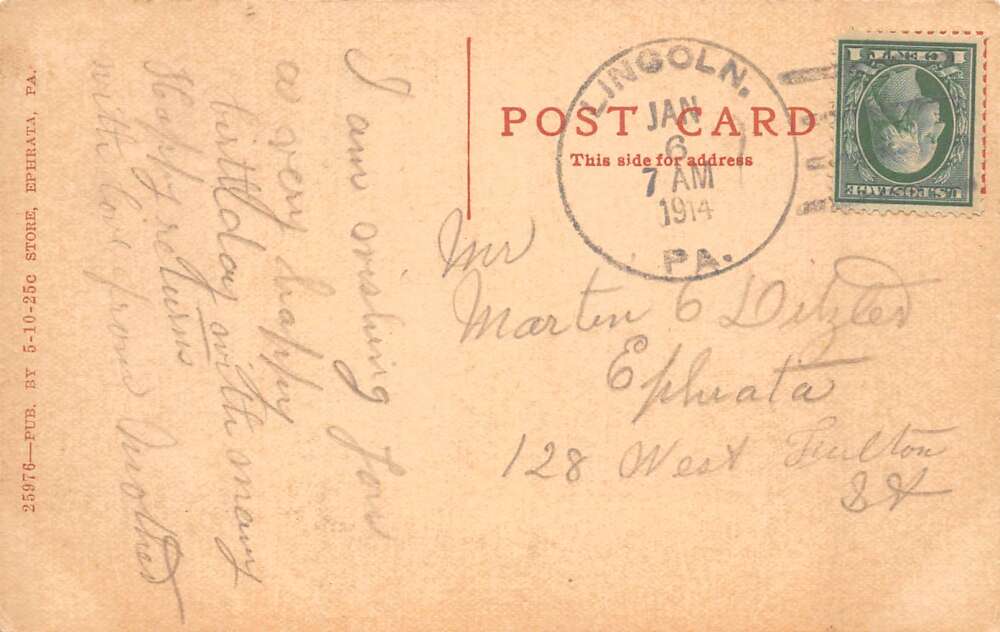 POST CARD
This side for address
LINCOLN,
JAN
6
7 AM
1914
PA.
1 CENT 1
U.S. POSTAGE
Mr
Marten C Ditzler
Ephrata
128 West Fulton
St
I am wishing you
a very happy
birthday with many
Happy returns
with love from Mother
25976—PUB. BY 5-10-25C STORE, EPHRATA, PA.